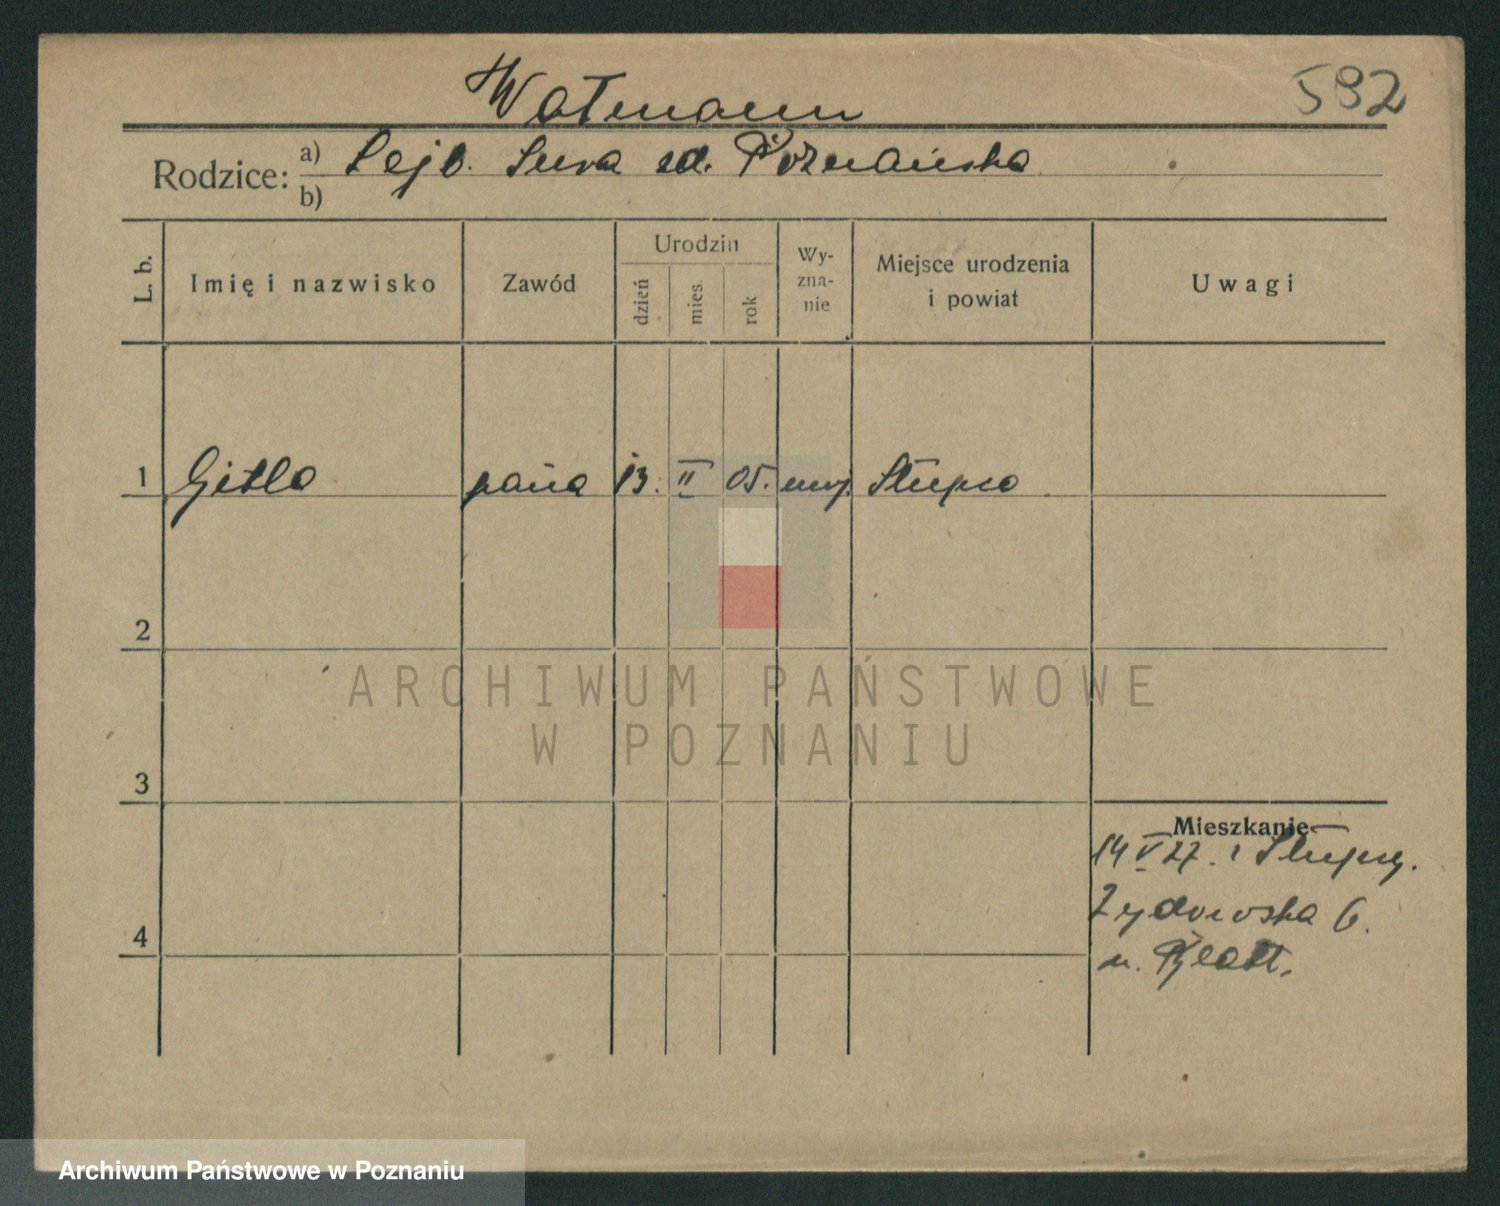 Watmann
592
Rodzice: a) Lejb. Sura zd. Poznańska
b)
L. b. Imię i nazwisko Zawód Urodzin dzień mies. rok Wyznanie Miejsce urodzenia i powiat Uwagi
1 Gitla pańa 13. II 05. mojż Słupca
2
3
4
Mieszkanie
14 V 27. z Słupcy.
Żydowska 6.
u.
ARCHIWUM PAŃSTWOWE
W POZNANIU
Archiwum Państwowe w Poznaniu